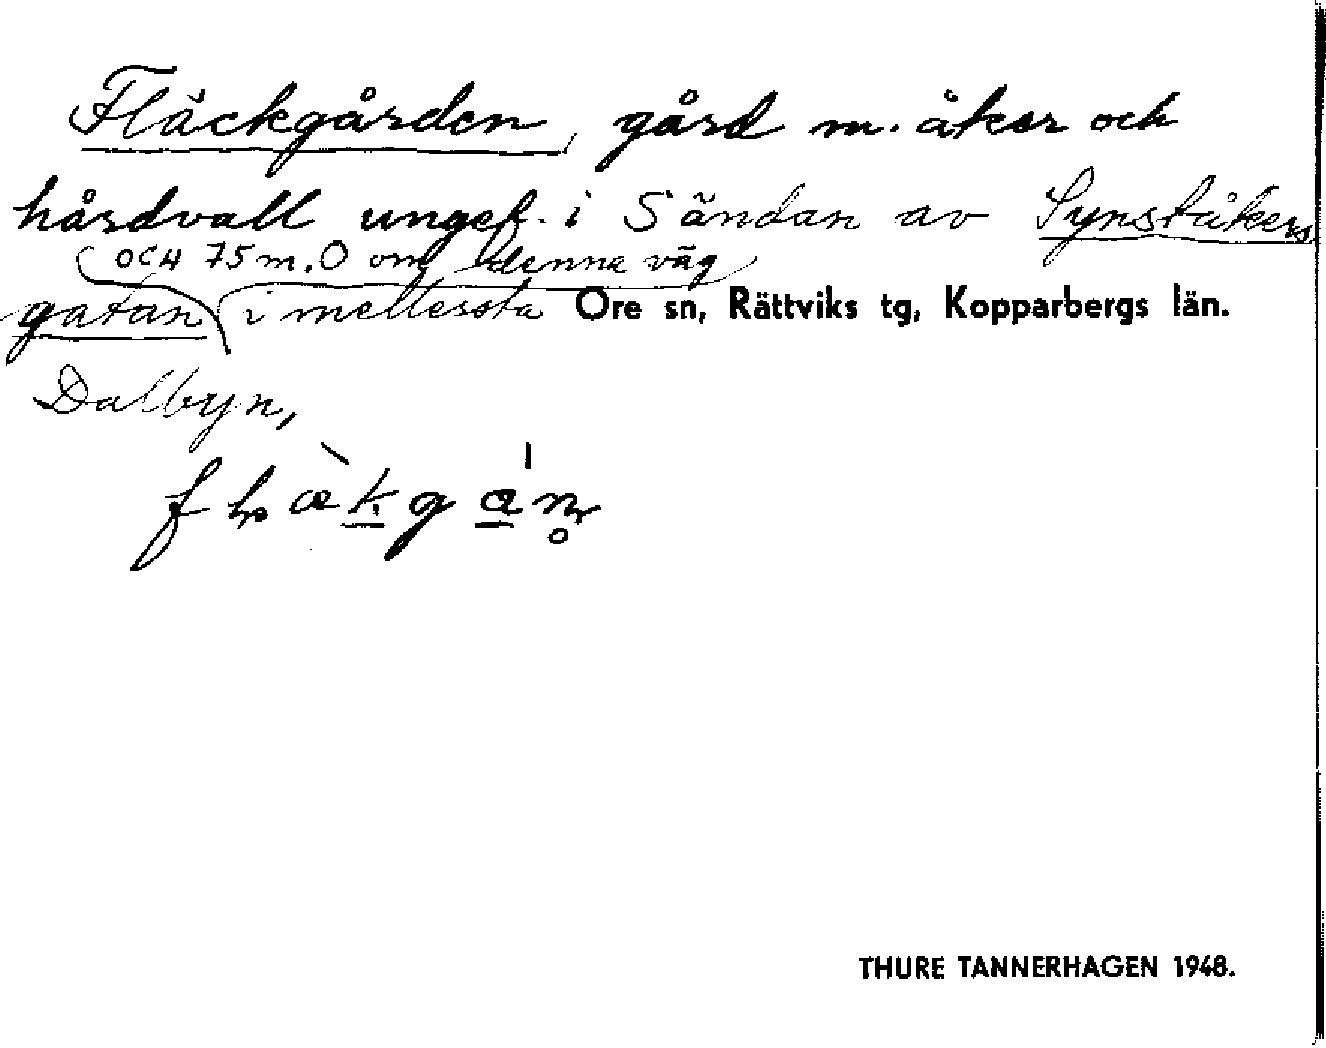 Fläckgården, gård m. åker och
hårdvall ungef. i S ändan av Synståkers
och 75 m. O om denna väg
gatan i mellersta Ore sn, Rättviks tg, Kopparbergs län.
Dalbyn,
THURE TANNERHAGEN 1948.